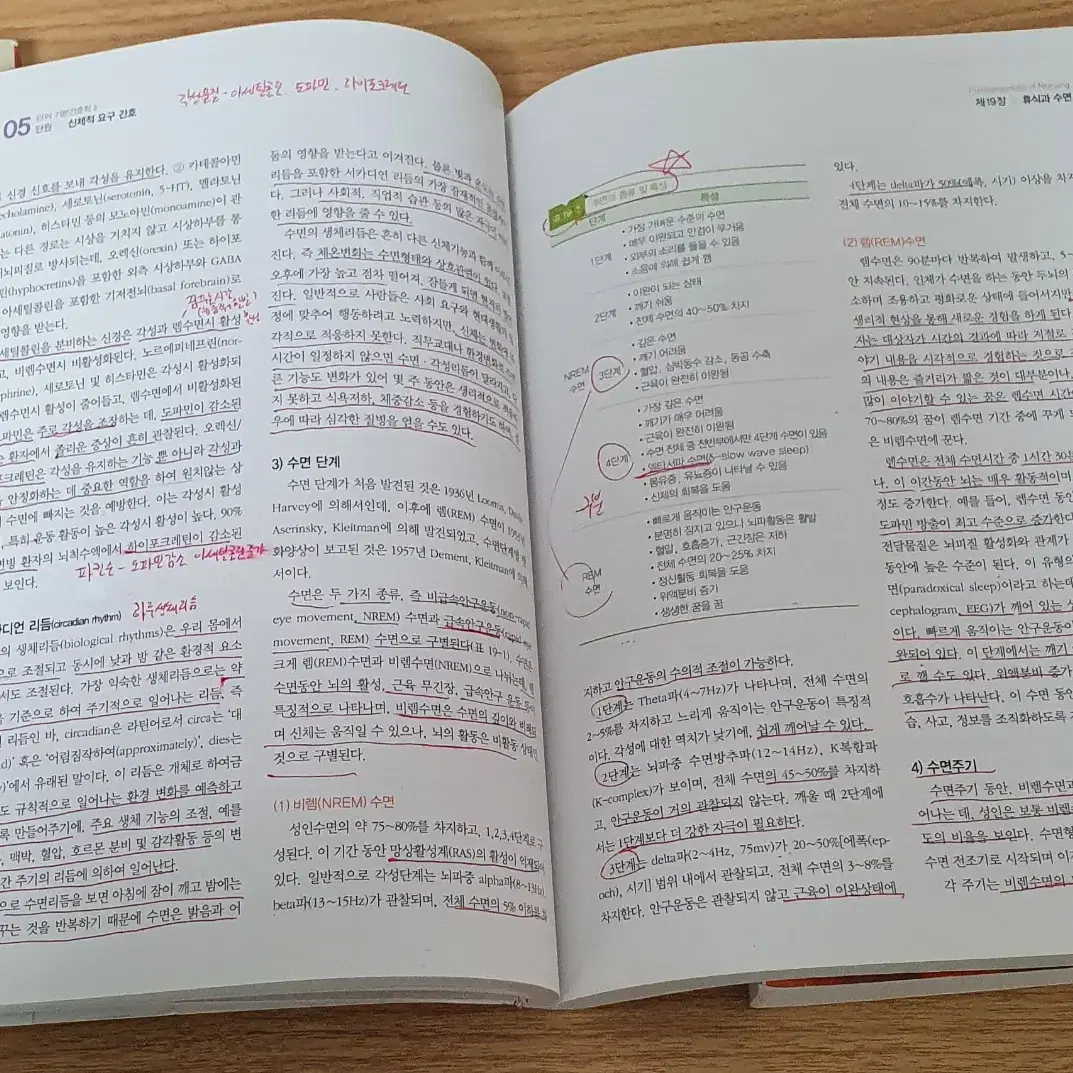 각성물질 - 아세틸콜린 도파민. 하이포크레틴
05
단원
신체적 요구 간호
신경 신호를 보내 각성을 유지한다. ② 카테콜아민
echolamine), 세로토닌(serotonin, 5-HT), 멜라토닌
atonin), 히스타민 등의 모노아민(monoamine)이 관
는 다른 경로는 시상을 거치지 않고 시상하부를 통
뇌피질로 방사되는데, 오렉신(orexin) 또는 하이포
틴(hyphocretins)을 포함한 외측 시상하부와 GABA
아세틸콜린을 포함한 기저전뇌(basal forebrain)로
영향을 받는다.
세틸콜린을 분비하는 신경은 각성과 렘수면시 활성
고, 비렘수면시 비활성화된다. 노르에피네프린(nor-
pirine), 세로토닌 및 히스타민은 각성시 활성화되
렘수면시 활성이 줄어들고, 렘수면에서 비활성화된
도파민은 주로 각성을 조장하는 데, 도파민이 감소된
환자에서 졸리운 증상이 흔히 관찰된다. 오렉신/
포크레틴은 각성을 유지하는 기능 뿐 아니라 각성과
안정화하는 데 중요한 역할을 하여 원치않는 상
수면에 빠지는 것을 예방한다. 이는 각성시 활성
특히 운동 활동이 높은 각성시 활성이 높다. 90%
면병 환자의 뇌척수액에서 하이포크레틴이 감소된
보인다.
파킨슨 - 도파민감소 아세틸콜린증가
디언 리듬(circadian rhythm)
하루생체리듬
의 생체리듬(biological rhythms)은 우리 몸에서
로 조절되고 동시에 낮과 밤 같은 환경적 요소
서도 조절된다. 가장 익숙한 생체리듬으로는 약
을 기준으로 하여 주기적으로 일어나는 리듬, 즉
리듬인 바, circadian은 라틴어로서 circa는 '대
d)' 혹은 '어림짐작하여(approximately)', dies는
y)'에서 유래된 말이다. 이 리듬은 개체로 하여금
도 규칙적으로 일어나는 환경 변화를 예측하고
록 만들어주기에, 주요 생체 기능의 조절, 예를
맥박, 혈압, 호르몬 분비 및 감각활동 등의 변
간 주기의 리듬에 의하여 일어난다.
으로 수면리듬을 보면 아침에 잠이 깨고 밤에는
꾸는 것을 반복하기 때문에 수면은 밝음과 어
둠의 영향을 받는다고 여겨진다. 물론 빛과
리듬을 포함한 서카디언 리듬의 가장
다. 그러나 사회적, 직업적 습관 등의 많은
한 리듬에 영향을 줄 수 있다.
수면의 생체리듬은 흔히 다른 신체기능과 함께
진다. 즉 체온변화는 수면형태와 상호관련이 있다.
오후에 가장 높고 점차 떨어져, 잠들게 되면 현저히
진다. 일반적으로 사람들은 사회 요구와 현대생활의
정에 맞추어 행동하려고 노력하지만, 신체는
각적으로 적응하지 못한다. 직무교대나 환경변화로
시간이 일정하지 않으면 수면 · 각성리듬이 달라지고,
른 기능도 변화가 있어 몇 주 동안은 생리적으로
지 못하고 식욕저하, 체중감소 등을 경험하기도 하며,
우에 따라 심각한 질병을 얻을 수도 있다.
3) 수면 단계
수면 단계가 처음 발견된 것은 1936년 Loomin, Davis
Harvey에 의해서인데, 이후에 렘(REM) 수면이
Aserinsky, Kleitman에 의해 발견되었고, 수면단계별
화양상이 보고된 것은 1957년 Dement, Kleitman에 의해
서이다.
수면은 두 가지 종류, 즉 비급속안구운동(non-rapid
eye movement, NREM) 수면과 급속안구운동(rapid eye
movement, REM) 수면으로 구별된다(표 19-1). 수면은
크게 렘(REM)수면과 비렘수면(NREM)으로 나뉘는데,
수면동안 뇌의 활성, 근육 무긴장, 급속안구 운동
특징적으로 나타나며, 비렘수면은 수면의 깊이와
며 신체는 움직일 수 있으나, 뇌의 활동은 비활동
것으로 구별된다.
(1) 비렘(NREM) 수면
성인수면의 약 75~80%를 차지하고, 1,2,3,4단계로 구
성된다. 이 기간 동안 망상활성계(RAS)의 활성이 억제되어
있다. 일반적으로 각성단계는 뇌파중 alpha파(8~13Hz),
beta파(13~15Hz)가 관찰되며, 전체 수면의 5% 이하를
Fundamentals of Nursing
제19장 휴식과 수면
수면의 종류 및 특징
단계 특성
1단계
• 가장 가벼운 수준의 수면
• 매우 이완되고 안검이 무거움
• 외부의 소리를 들을 수 있음
• 소음에 의해 쉽게 깸
2단계
• 이완이 되는 상태
• 깨기 쉬움
• 전체 수면의 40~50% 차지
NREM
수면
3단계
• 깊은 수면
• 깨기 어려움
• 혈압, 심박동수 감소, 동공 수축
• 근육이 완전히 이완됨
4단계
• 가장 깊은 수면
• 깨기가 매우 어려움
• 근육이 완전히 이완됨
• 수면 전체 중 전반부에서만 4단계 수면이 있음
• 델타서파 수면(δ-slow wave sleep)
• 몽유증, 유뇨증이 나타날 수 있음
• 신체의 회복을 도움
구분
REM
수면
• 빠르게 움직이는 안구운동
• 분명히 잠자고 있으나 뇌파활동은 활발
• 혈압, 호흡증가, 근긴장은 저하
• 전체 수면의 20~25% 차지
• 정신활동 회복을 도움
• 위액분비 증가
• 생생한 꿈을 꿈
지하고 안구운동의 수의적 조절이 가능하다.
1단계는 Theta파(4~7Hz)가 나타나며, 전체 수면의
2~5%를 차지하고 느리게 움직이는 안구운동이 특징적
이다. 각성에 대한 역치가 낮기에, 쉽게 깨어날 수 있다.
2단계는 뇌파중 수면방추파(12~14Hz), K복합파
(K-complex)가 보이며, 전체 수면의 45~50%를 차지하
고, 안구운동이 거의 관찰되지 않는다. 깨울 때 2단계에
서는 1단계보다 더 강한 자극이 필요하다.
3단계는 delta파(2~4Hz, 75mv)가 20~50%[에폭(ep-
och), 시기] 범위 내에서 관찰되고, 전체 수면의 3~8%를
차지한다. 안구운동은 관찰되지 않고 근육이 이완상태에
있다.
4단계는 delta파가 50%(에폭, 시기) 이상을 차지
전체 수면의 10~15%를 차지한다.
(2) 렘(REM)수면
렘수면은 90분마다 반복하여 발생하고, 5~
안 지속된다. 인체가 수면을 하는 동안 두뇌의
소하며 조용하고 평화로운 상태에 들어서지만
생리적 현상을 통해 새로운 경험을 하게 된다
자는 대상자가 시간의 경과에 따라 저절로
야기 내용을 시각적으로 경험하는 것으로
의 내용은 줄거리가 짧은 것이 대부분이나,
많이 이야기할 수 있는 꿈은 렘수면 시간
70~80%의 꿈이 렘수면 기간 중에 꾸게 되
은 비렘수면에 꾼다.
렘수면은 전체 수면시간 중 1시간 30분
나, 이 기간동안 뇌는 매우 활동적이며
정도 증가한다. 예를 들어, 렘수면 동안
도파민 방출이 최고 수준으로 증가한다
전달물질은 뇌피질 활성화와 관계가
동안에 높은 수준이 된다. 이 유형의
면(paradoxical sleep)이라고 하는데
cephalogram, EEG)가 깨어 있는
이다. 빠르게 움직이는 안구운동이
완되어 있다. 이 단계에서는 깨기
로 깰 수도 있다. 위액분비 증가
호흡수가 나타난다. 이 수면 동안
습, 사고, 정보를 조직화하도록
4) 수면주기
수면주기 동안, 비렘수면과
어나는 데, 성인은 보통 비렘수
도의 비율을 보인다. 수면형
수면 전조기로 시작되며 이
각 주기는 비렘수면의